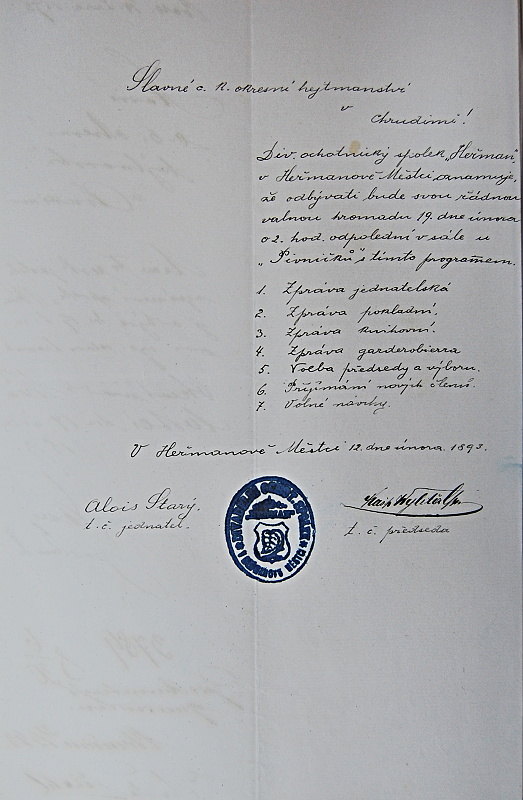 Slavné c. k. okresní hejtmanství
v
Chrudimi!
Div. ochotnický spolek „Heřman"
v Heřmanově Městci, oznamuje,
že odbývati bude svou řádnou
valnou hromadu 19. dne února
o 2. hod. odpolední v sále u
„Pivničků" s tímto programem.
1. Zpráva jednatelská
2. Zpráva pokladní.
3. Zpráva knihovní.
4. Zpráva garderobierra
5. Volba předsedy a výboru.
6. Přijímání nových členů.
7. Volné návrhy.
V Heřmanově Městci 12. dne února 1893.
Alois Starý.
t. č. jednatel.
t. č. předseda
DIVADELNÍ OCHOT. SPOLEK
„HEŘMAN"
V HEŘMANOVĚ MĚSTCI